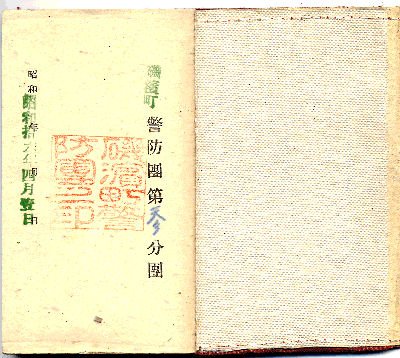 磯濱町警防團第分團
磯濱町警
防團之印
昭和拾六年四月壹日